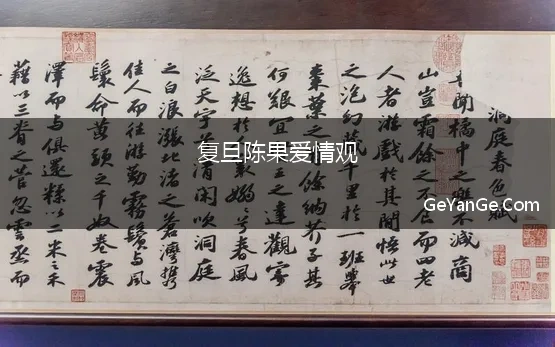 洞庭春色賦
聞橘中之樂不減商
山豈霜餘之不食而四老
人者游戲於其間悟此世
之泡幻藏千里於一班舉
棗葉之有餘納芥子其
何艱宜賢王之達觀寄
逸想於人寰嫋兮春風
泛天宇兮清閑吹洞庭
之白浪漲北渚之蒼灣攜
佳人而往游勤霧鬢與風
鬟命黃頭之千奴卷震
澤而與俱還糅以二米之禾
藉以三脊之菅忽雲烝而
复旦陈果爱情观
GeYanGe.Com